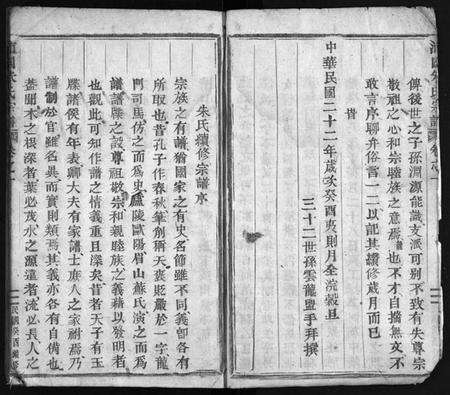 傳後世之子孫淵源能識支派可別不致有失尊宗
敬祖之心和宗睦族之意焉也不才自揣無文不
敢言序聊弁俗言一二以記其續修歲月而已
旹
中華民國二十二年歲次癸酉夷則月全浣穀旦
三十二世孫雲龍盥手拜撰
朱氏續修宗譜序
宗族之有譜猶國家之有史名篩雖不同義卽各有
所取也昔孔子作春秋筆削稱天袞貶嚴於一字龍
門司馬仿之而爲史廬陵歐陽眉山蘇氏演之而爲
譜譜牒之設尊祖敬宗和親睦族之義藉以發明者
也觀此可知作譜之情義重且深矣昔者天子有玉
牒諸侯有年表卿大夫有家譜士庶人之家
譜制於官雖名異而實則類其義亦各有自備也
蓋聞木之根深者葉必茂水之源遠者流必長人之